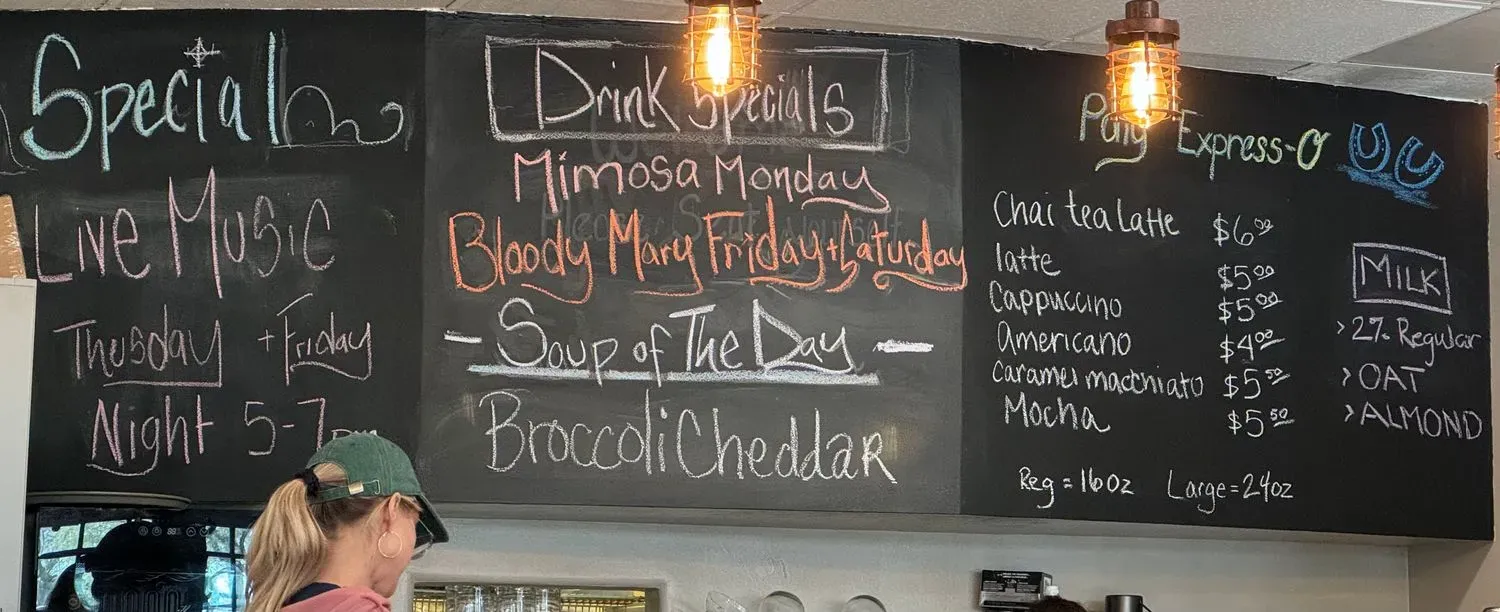 Special
Live Music
Thusday + Friday
Night 5-7 PM
Drink Specials
Mimosa Monday
Bloody Mary Friday + Saturday
- Soup of The Day -
Broccoli Cheddar
Pony Express-O
Chai tea latte $6.00
latte $5.00
Cappuccino $5.00
Americano $4.00
Caramel macchiato $5.50
Mocha $5.50
Reg = 16oz Large = 24oz
MILK
> 2% Regular
> OAT
> ALMOND